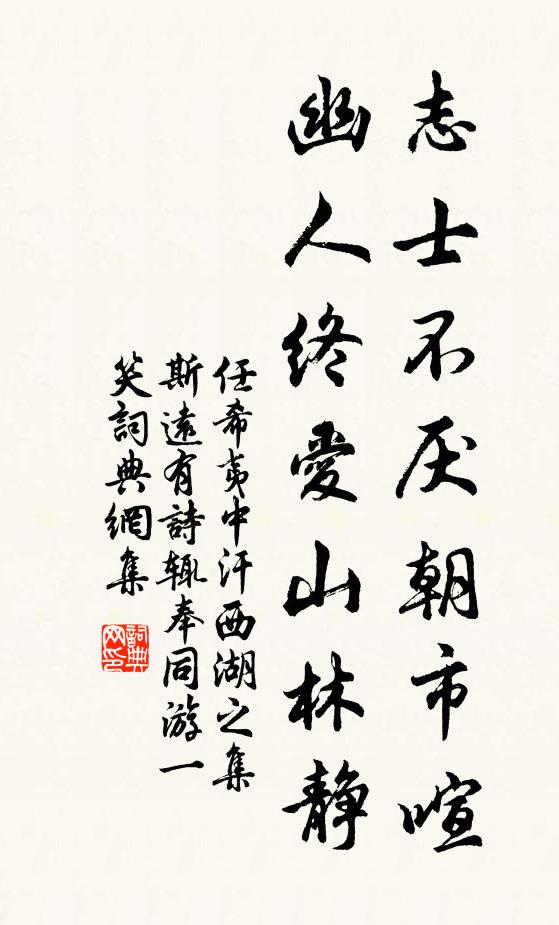 志士不厌朝市喧
幽人终愛山林静
任希夷中汗西湖之集
斯遠有詩辄奉同游一
笑詞典網集
詞典网印